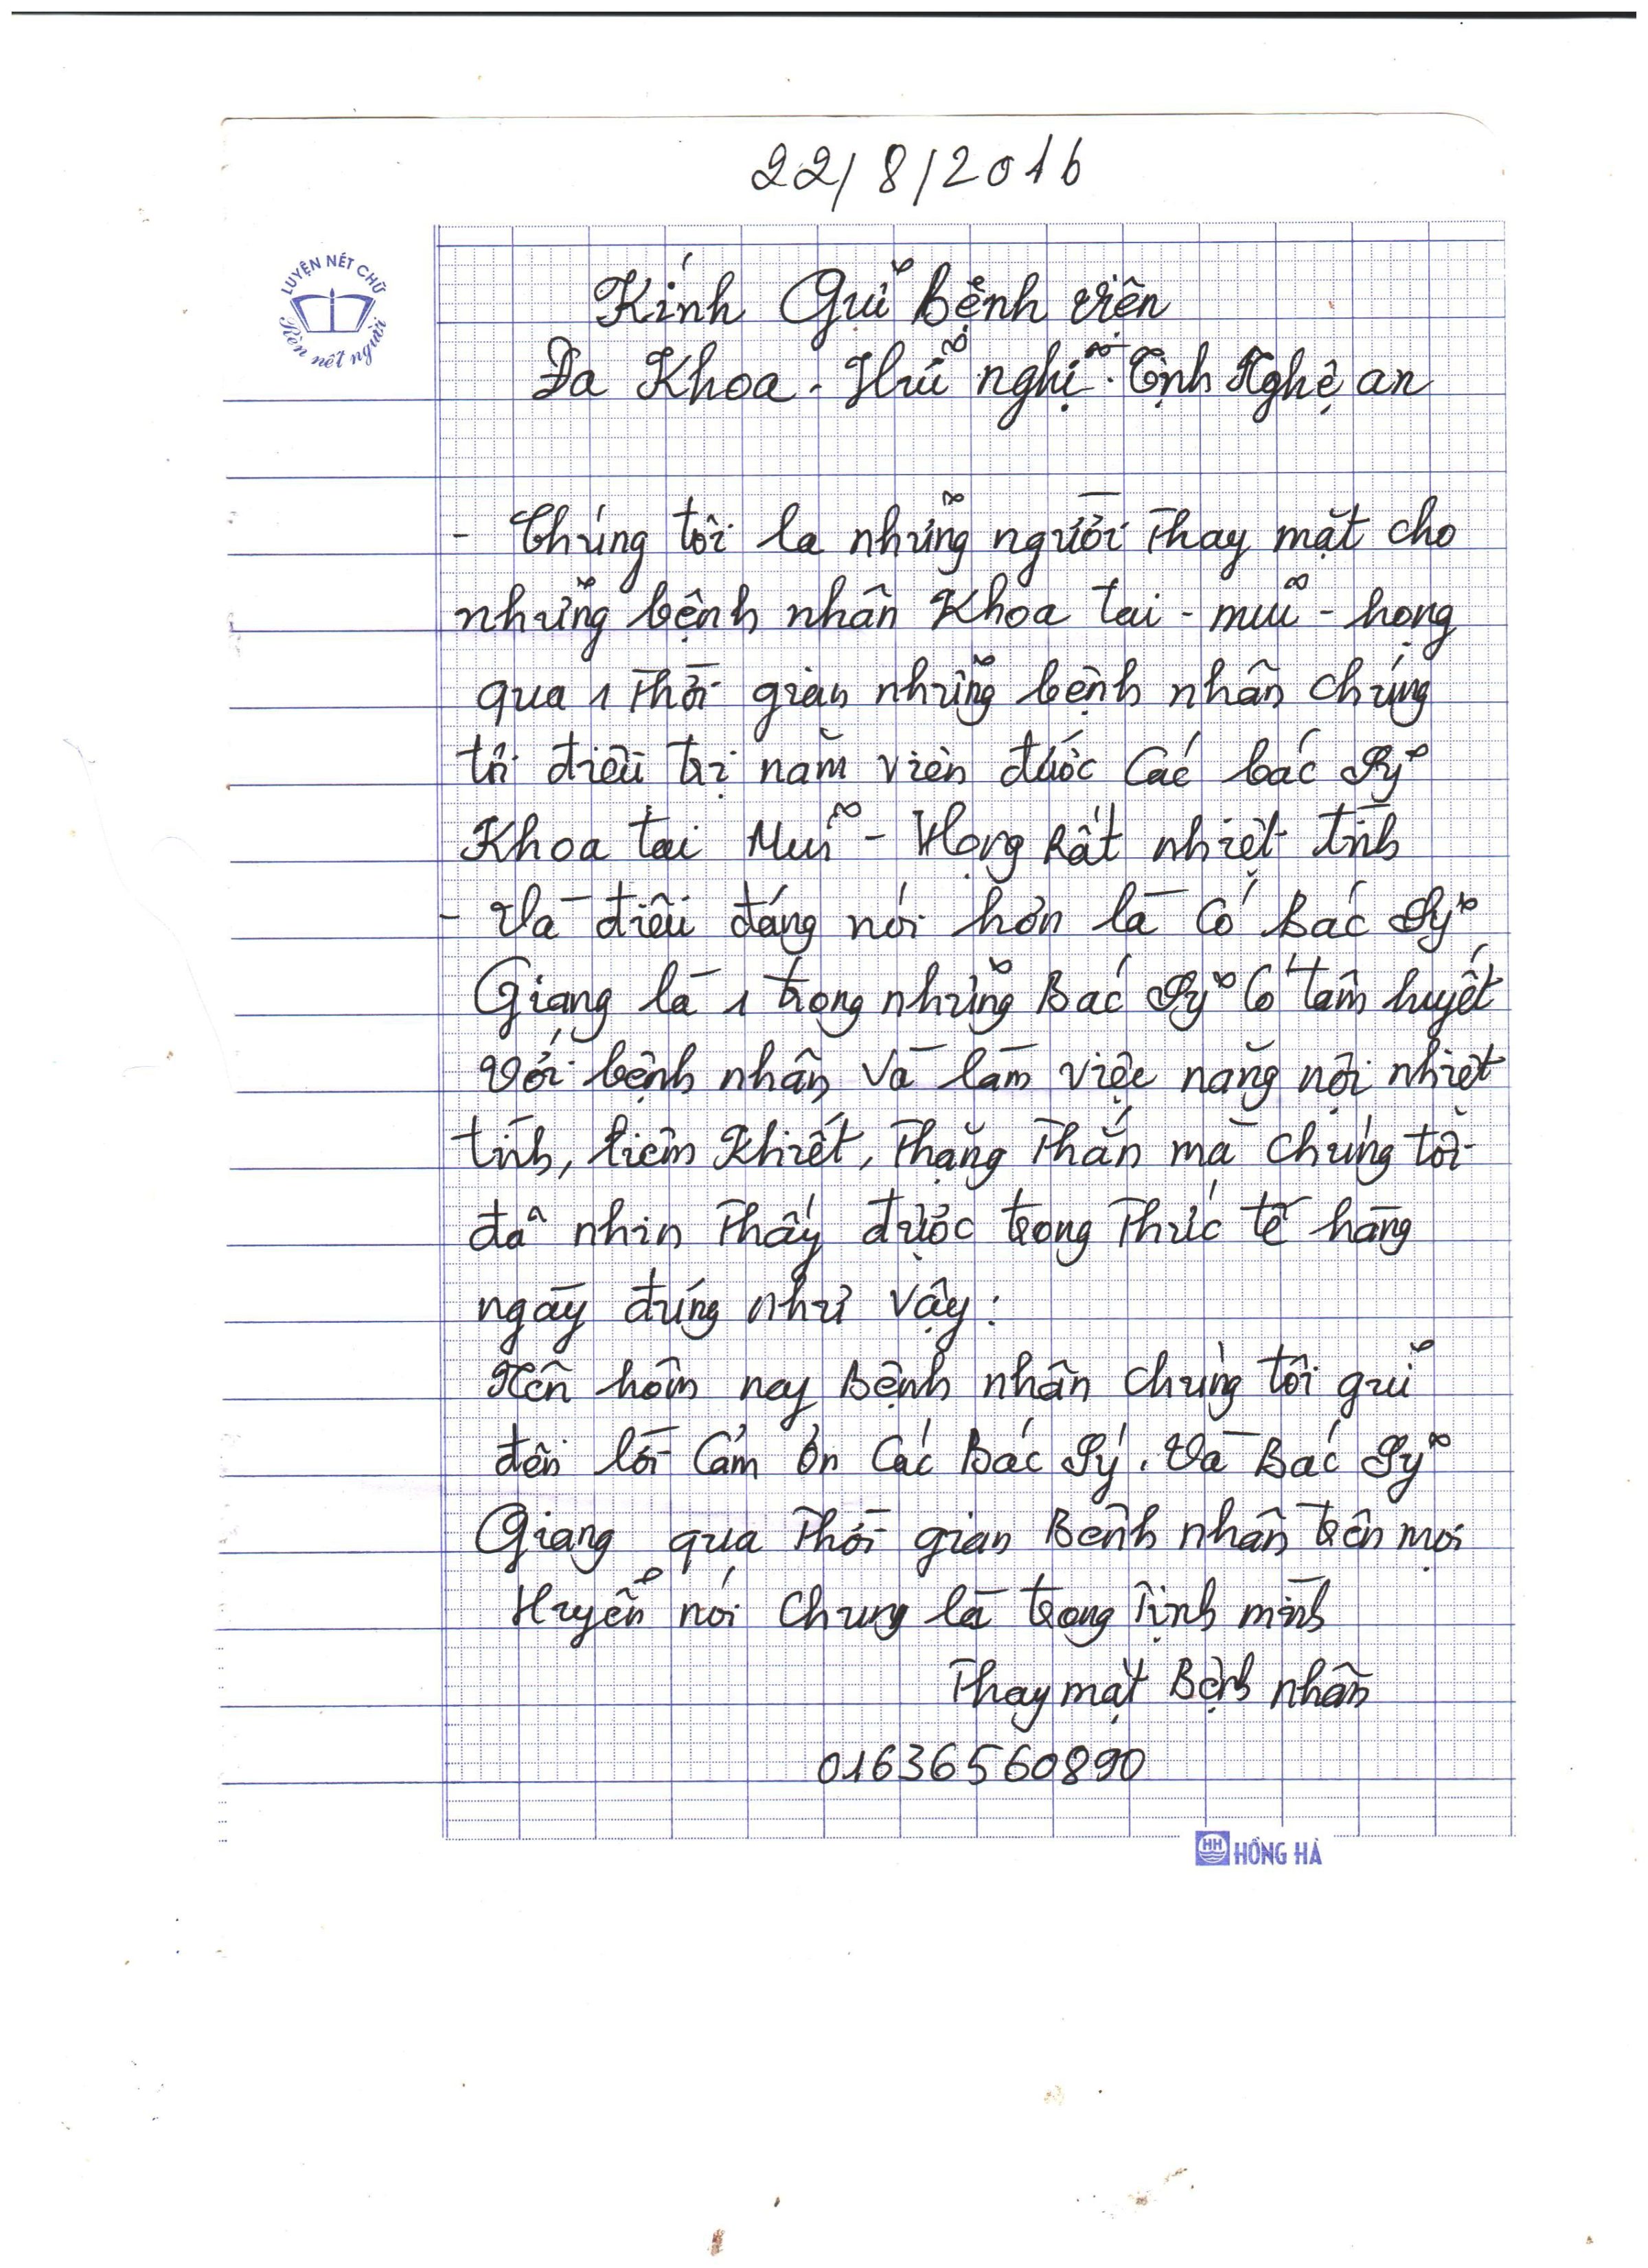 22/8/2016
LUYỆN NÉT CHỮ
Rèn nết người
Kính Gửi Bệnh viện
Đa Khoa - Hữu nghị - Tỉnh Nghệ an
- Chúng tôi là những người Thay mặt cho
những bệnh nhân Khoa tai - mũi - họng
qua 1 Thời gian những bệnh nhân chúng
tôi điều trị nằm viện được Các bác Sỹ
Khoa tai Mũi - Họng Rất nhiệt tình
- Và điều đáng nói hơn là Có Bác Sỹ
Giang là 1 trong những Bác Sỹ Có tâm huyết
Với bệnh nhân Và làm việc năng nội nhiệt
tình, liêm Khiết, Thẳng Thắn mà Chúng tôi
đã nhìn Thấy được trong Thức tế hàng
ngày đúng như vậy:
Nên hôm nay Bệnh nhân Chúng tôi gửi
đến lời Cảm ơn Các Bác Sỹ. Và Bác Sỹ
Giang qua Thời gian Bệnh nhân trên mọi
Huyển nói Chung là trong Tỉnh mình
Thay mặt Bệnh nhân
01636560890
HH HỒNG HÀ